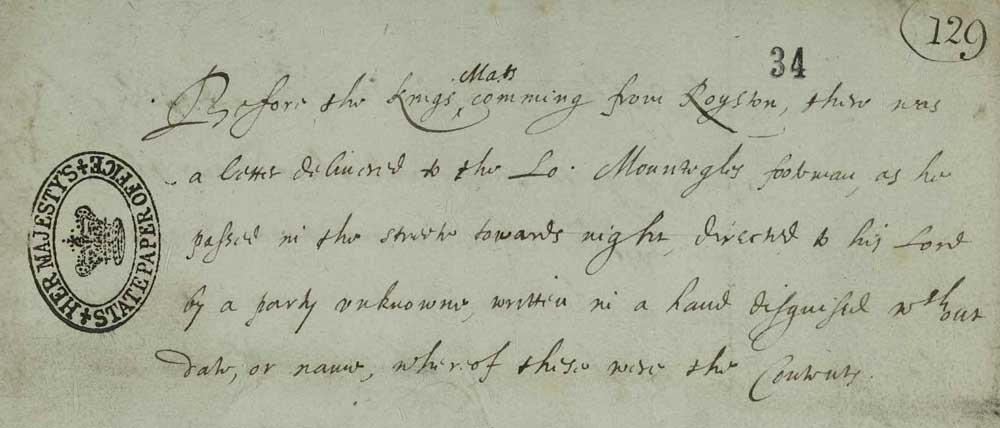 129
34
Mats
Before the Kings comming from Royston, there was
a letter delivered to the Lo. Mountegles footeman, as he
passed in the streete towards night, directed to his Lord
by a party unknowne, written in a hand disguised wthout
date, or name, whereof these were the Contents.
HER MAJESTY'S STATE PAPER OFFICE